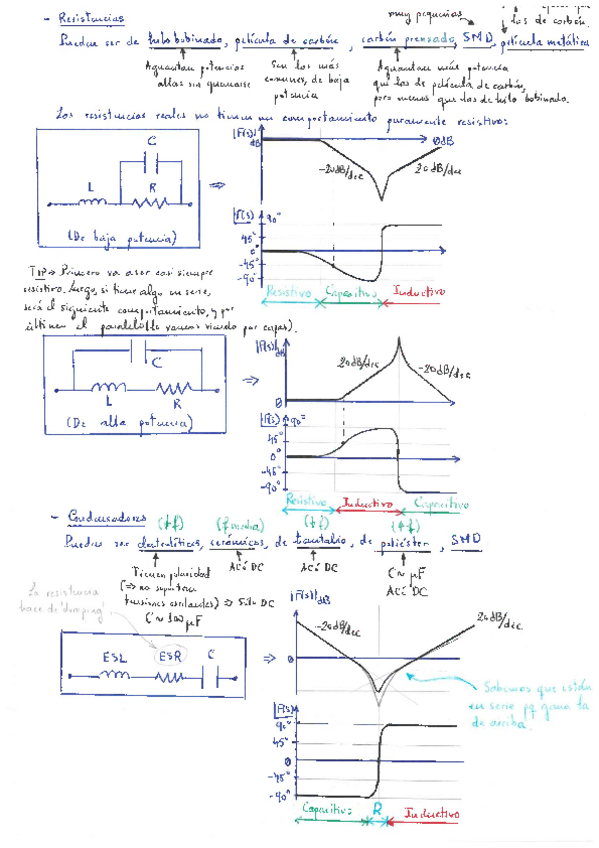 - Resistencias
muy pequeñas
las de carbón.
Pueden ser de hilo bobinado, película de carbón, carbón prensado, SMD, película metálica
Aguantan potencias altas sin quemarse
Son las más comunes, de baja potencia
Aguantan más potencia que las de película de carbón, pero menos que las de hilo bobinado.
Las resistencias reales no tienen un comportamiento puramente resistivo:
C
L
R
(De baja potencia)
⇒
|F(s)|dB
0dB
-20dB/dec
20dB/dec
|F(s)
90°
45°
0°
-45°
-90°
Resistivo
Capacitivo
Inductivo
TIP → Primero va a ser casi siempre
resistivo. Luego, si tiene algo en serie,
será el siguiente comportamiento, y por
último el paralelo (lo vamos viendo por capas).
C
L
R
(De alta potencia)
⇒
|F(s)|dB
20dB/dec
-20dB/dec
0
|F(s)
90°
45°
0°
-45°
-90°
Resistivo
Inductivo
Capacitivo
- Condensadores
(↓f)
(f media)
(↓f)
(↑f)
Pueden ser electrolíticos, cerámicos, de tantalio, de poliéster, SMD
Tienen polaridad
(⇒ no soportan
tensiones oscilantes) ⇒ Sólo DC
C~100μF
AC é DC
AC é DC
C~μF
AC é DC
La resistencia
hace de 'damping'
ESL
ESR
C
⇒
|F(s)|dB
-20dB/dec
20dB/dec
0
Sabemos que están
en serie pq gana la
de arriba.
|F(s)
90°
45°
0
-45°
-90°
Capacitivo
R
Inductivo